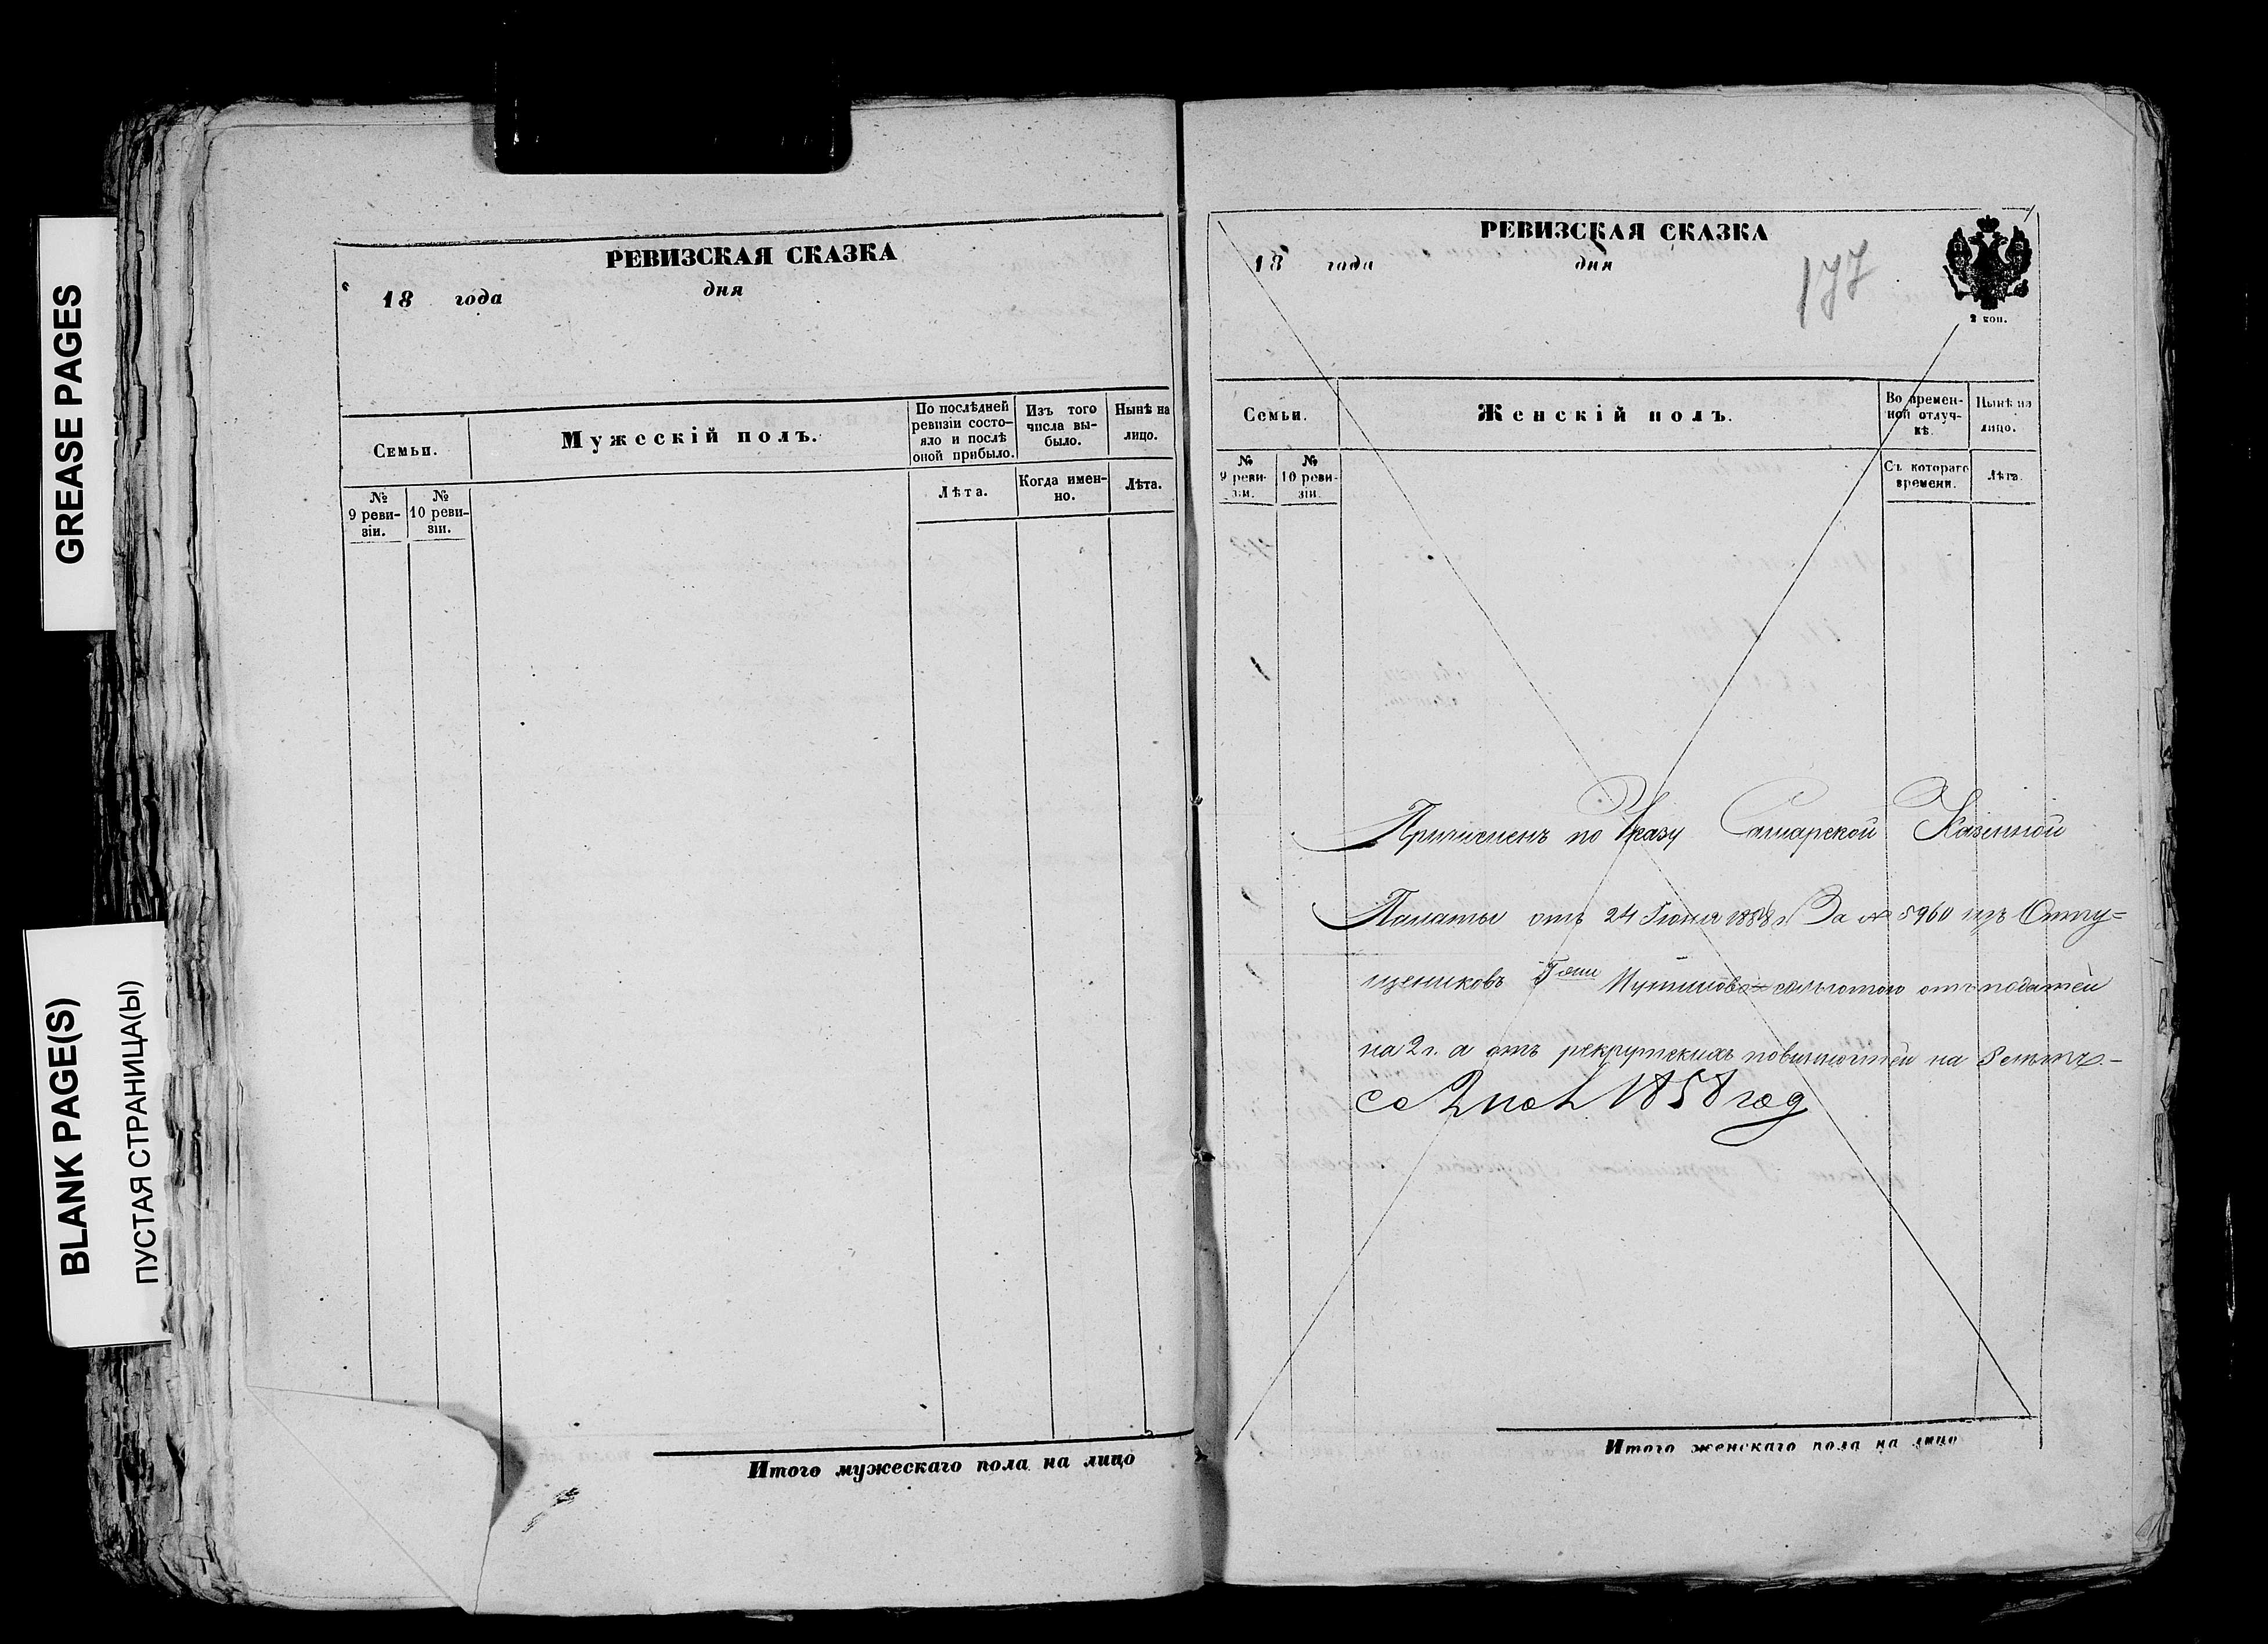 GREASE PAGES
BLANK PAGE(S)
ПУСТАЯ СТРАНИЦА(Ы)
РЕВИЗСКАЯ СКАЗКА
18 года дня
Семьи.
Мужескій полъ.
По послѣдней ревизіи состо-
яло и послѣ
оной прибыло.
Изъ того
числа вы-
было.
Нынѣ на
лицо.
№
9 реви-
зіи.
№
10 реви-
зіи.
Лѣта.
Когда имен-
но.
Лѣта.
Итого мужескаго пола на лицо
РЕВИЗСКАЯ СКАЗКА
18 года дня
177
2 коп.
Семьи.
Женскій полъ.
Во времен-
ной отлуч-
кѣ.
Нынѣ на
лицо.
№
9 реви-
зіи.
№
10 реви-
зіи.
Съ котораго
времени.
Лѣта.
Причисленъ по Указу Самарской Казенной
Палаты отъ 24 Іюня 1858 г. За № 5960 изъ Отпу-
щениковъ отъ податей
на 2 г. а отъ рекрутскихъ повинностей на
со 2 пол. 1858 год
Итого женскаго пола на лицо